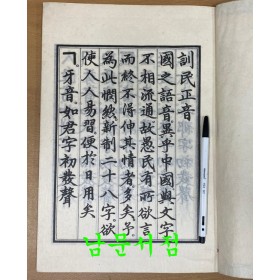 訓民正音
國之語音異乎中國與文字
不相流通故愚民有所欲言
而終不得伸其情者多矣予
為此憫然新制二十八字欲
使人人易習便於日用矣
ㄱ牙音如君字初發聲
남문서점